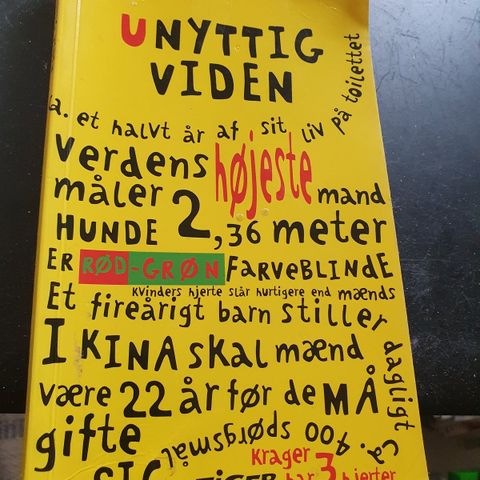 UNYTTIG
VIDEN
ca. et halvt år af sit liv på toilettet
verdens højeste
måler 2,36 meter mand
HUNDE
ER RØD-GRØN FARVEBLINDE
Kvinders hjerte slår hurtigere end mænds
Et fireårigt barn stiller dagligt ca. 400 spørgsmål
I KINA SKAL mænd
være 22 år før de MÅ
gifte
SIG
Krager
har 3 hjerter
TIGER